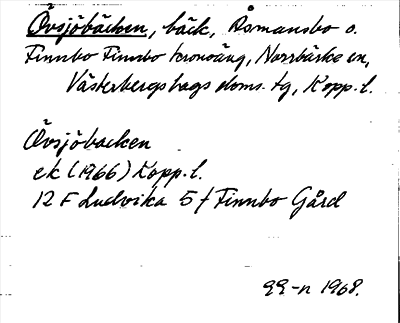 Övsjöbäcken, bäck, Romansbo o.
Finnbo Finnbo kronoäng, Norrbärke sn,
Västerbergslags doms. tg, Kopp. l.
Övsjöbacken
ek (1966) Kopp. l.
12 F Ludvika 5 f Finnbo Gård
1968.